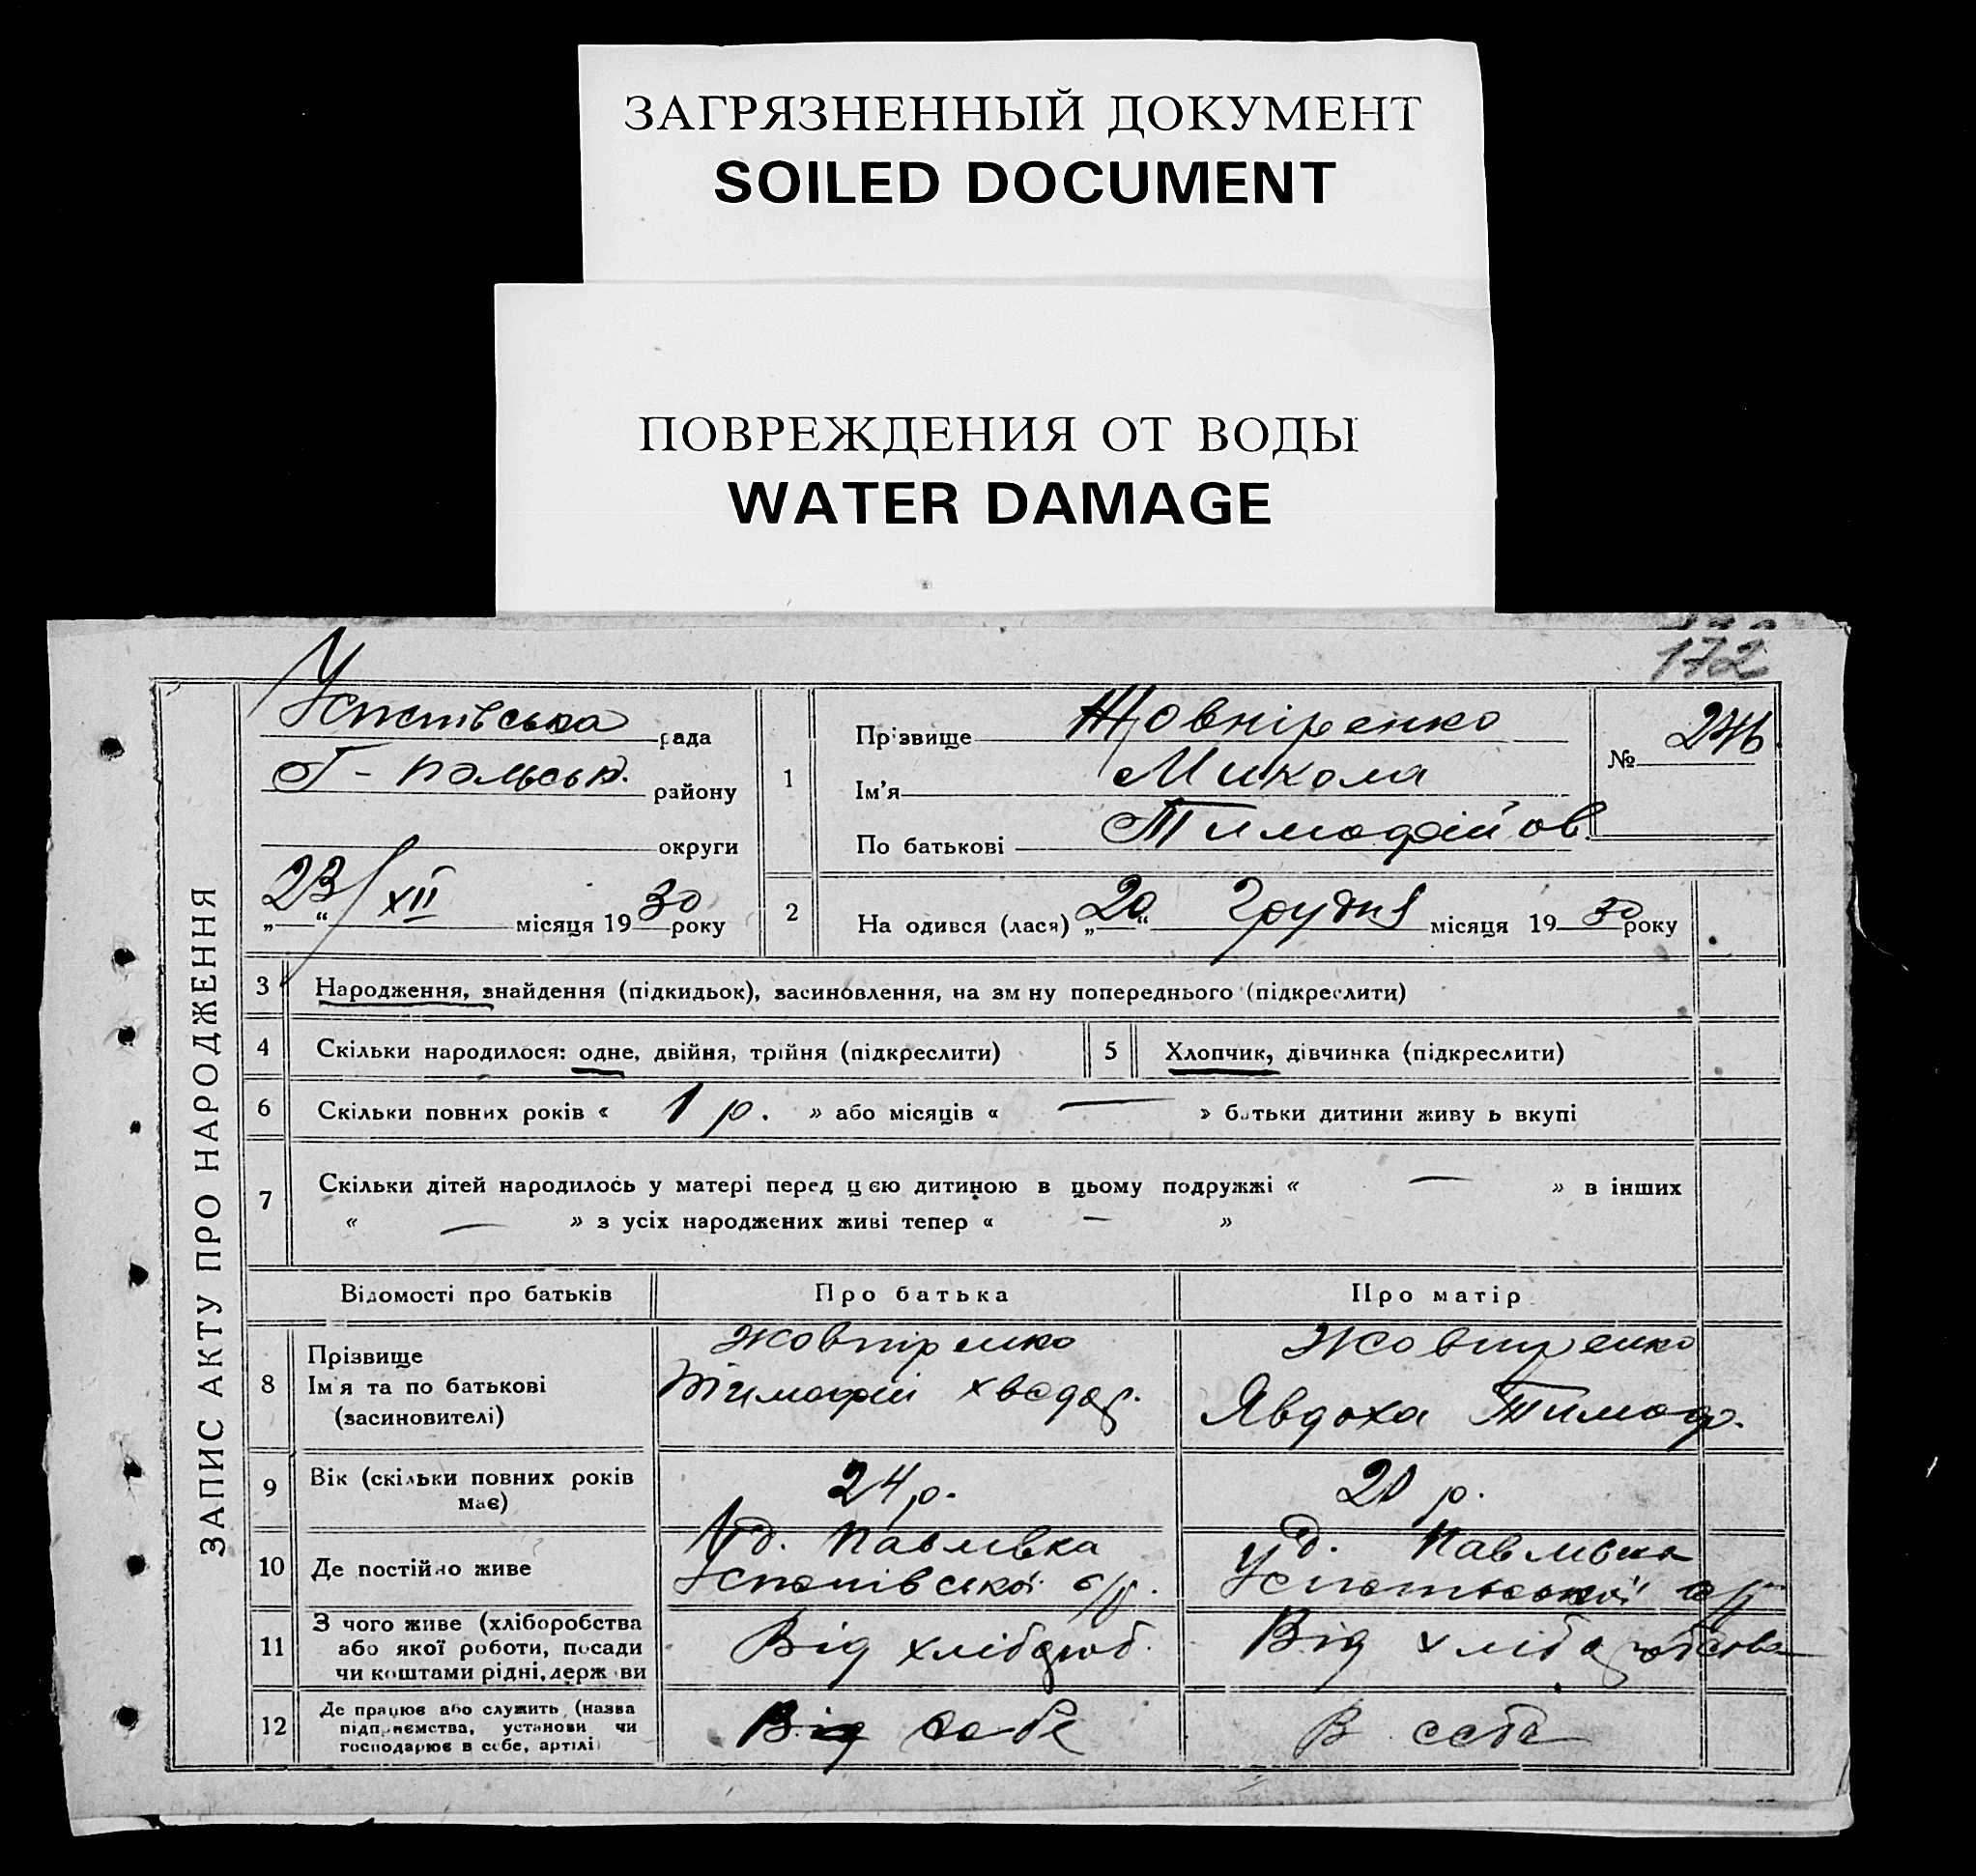 ЗАГРЯЗНЕННЫЙ ДОКУМЕНТ
SOILED DOCUMENT
ПОВРЕЖДЕНИЯ ОТ ВОДЫ
WATER DAMAGE
172
ЗАПИС АКТУ ПРО НАРОДЖЕННЯ
рада
Г-польськ. району
округи
„23“ XII місяця 1930 року
1
Прізвище Жовніренко
Ім'я Микола
По батькові Тимофійов.
№
2
На одився (лася) „20“ Грудня місяця 1930 року
3 Народження, знайдення (підкидьок), засиновлення, на зм ну попереднього (підкреслити)
4 Скільки народилося: одне, двійня, трійня (підкреслити)
5 Хлопчик, дівчинка (підкреслити)
6 Скільки повних років « 1 р. » або місяців « — » батьки дитини живу ь вкупі
7 Скільки дітей народилось у матері перед цією дитиною в цьому подружжі « — » в інших
« — » з усіх народжених живі тепер « — »
Відомості про батьків
Про батька
Про матір
8 Прізвище
Ім'я та по батькові
(засиновителі)
Жовніренко
Тимофій Хведор.
Жовніренко
Явдоха Тимоф.
9 Вік (скільки повних років
має)
24 р.
20 р.
10 Де постійно живе
д. Павлівка
с/р.
д. Павлівка
с/р
11 З чого живе (хліборобства
або якої роботи, посади
чи коштами рідні, держ ви
Від хлібороб.
Від хліборобства
12 Де працює або служить (назва
підприємства, установи чи
господарює в себе, артілі)
Від себе
В себе